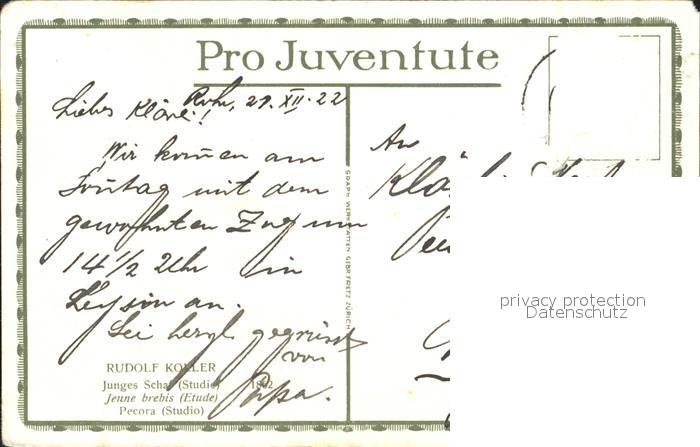 Pro Juventute
Rohr, 29. XII. 22
Liebes Kläre!
Wir kom̄en am
Son̄tag mit dem
gewohnten Zug um
14 1/2 Uhr in
Leysin an.
Sei herzl. gegrüsst
von
Papa.
RUDOLF KOLLER
Junges Schaf (Studie) 1862
Jeune brebis (Etude)
Pecora (Studio)
GRAPH. WERKSTÄTTEN GEBR. FRETZ, ZÜRICH
An
privacy protection
Datenschutz